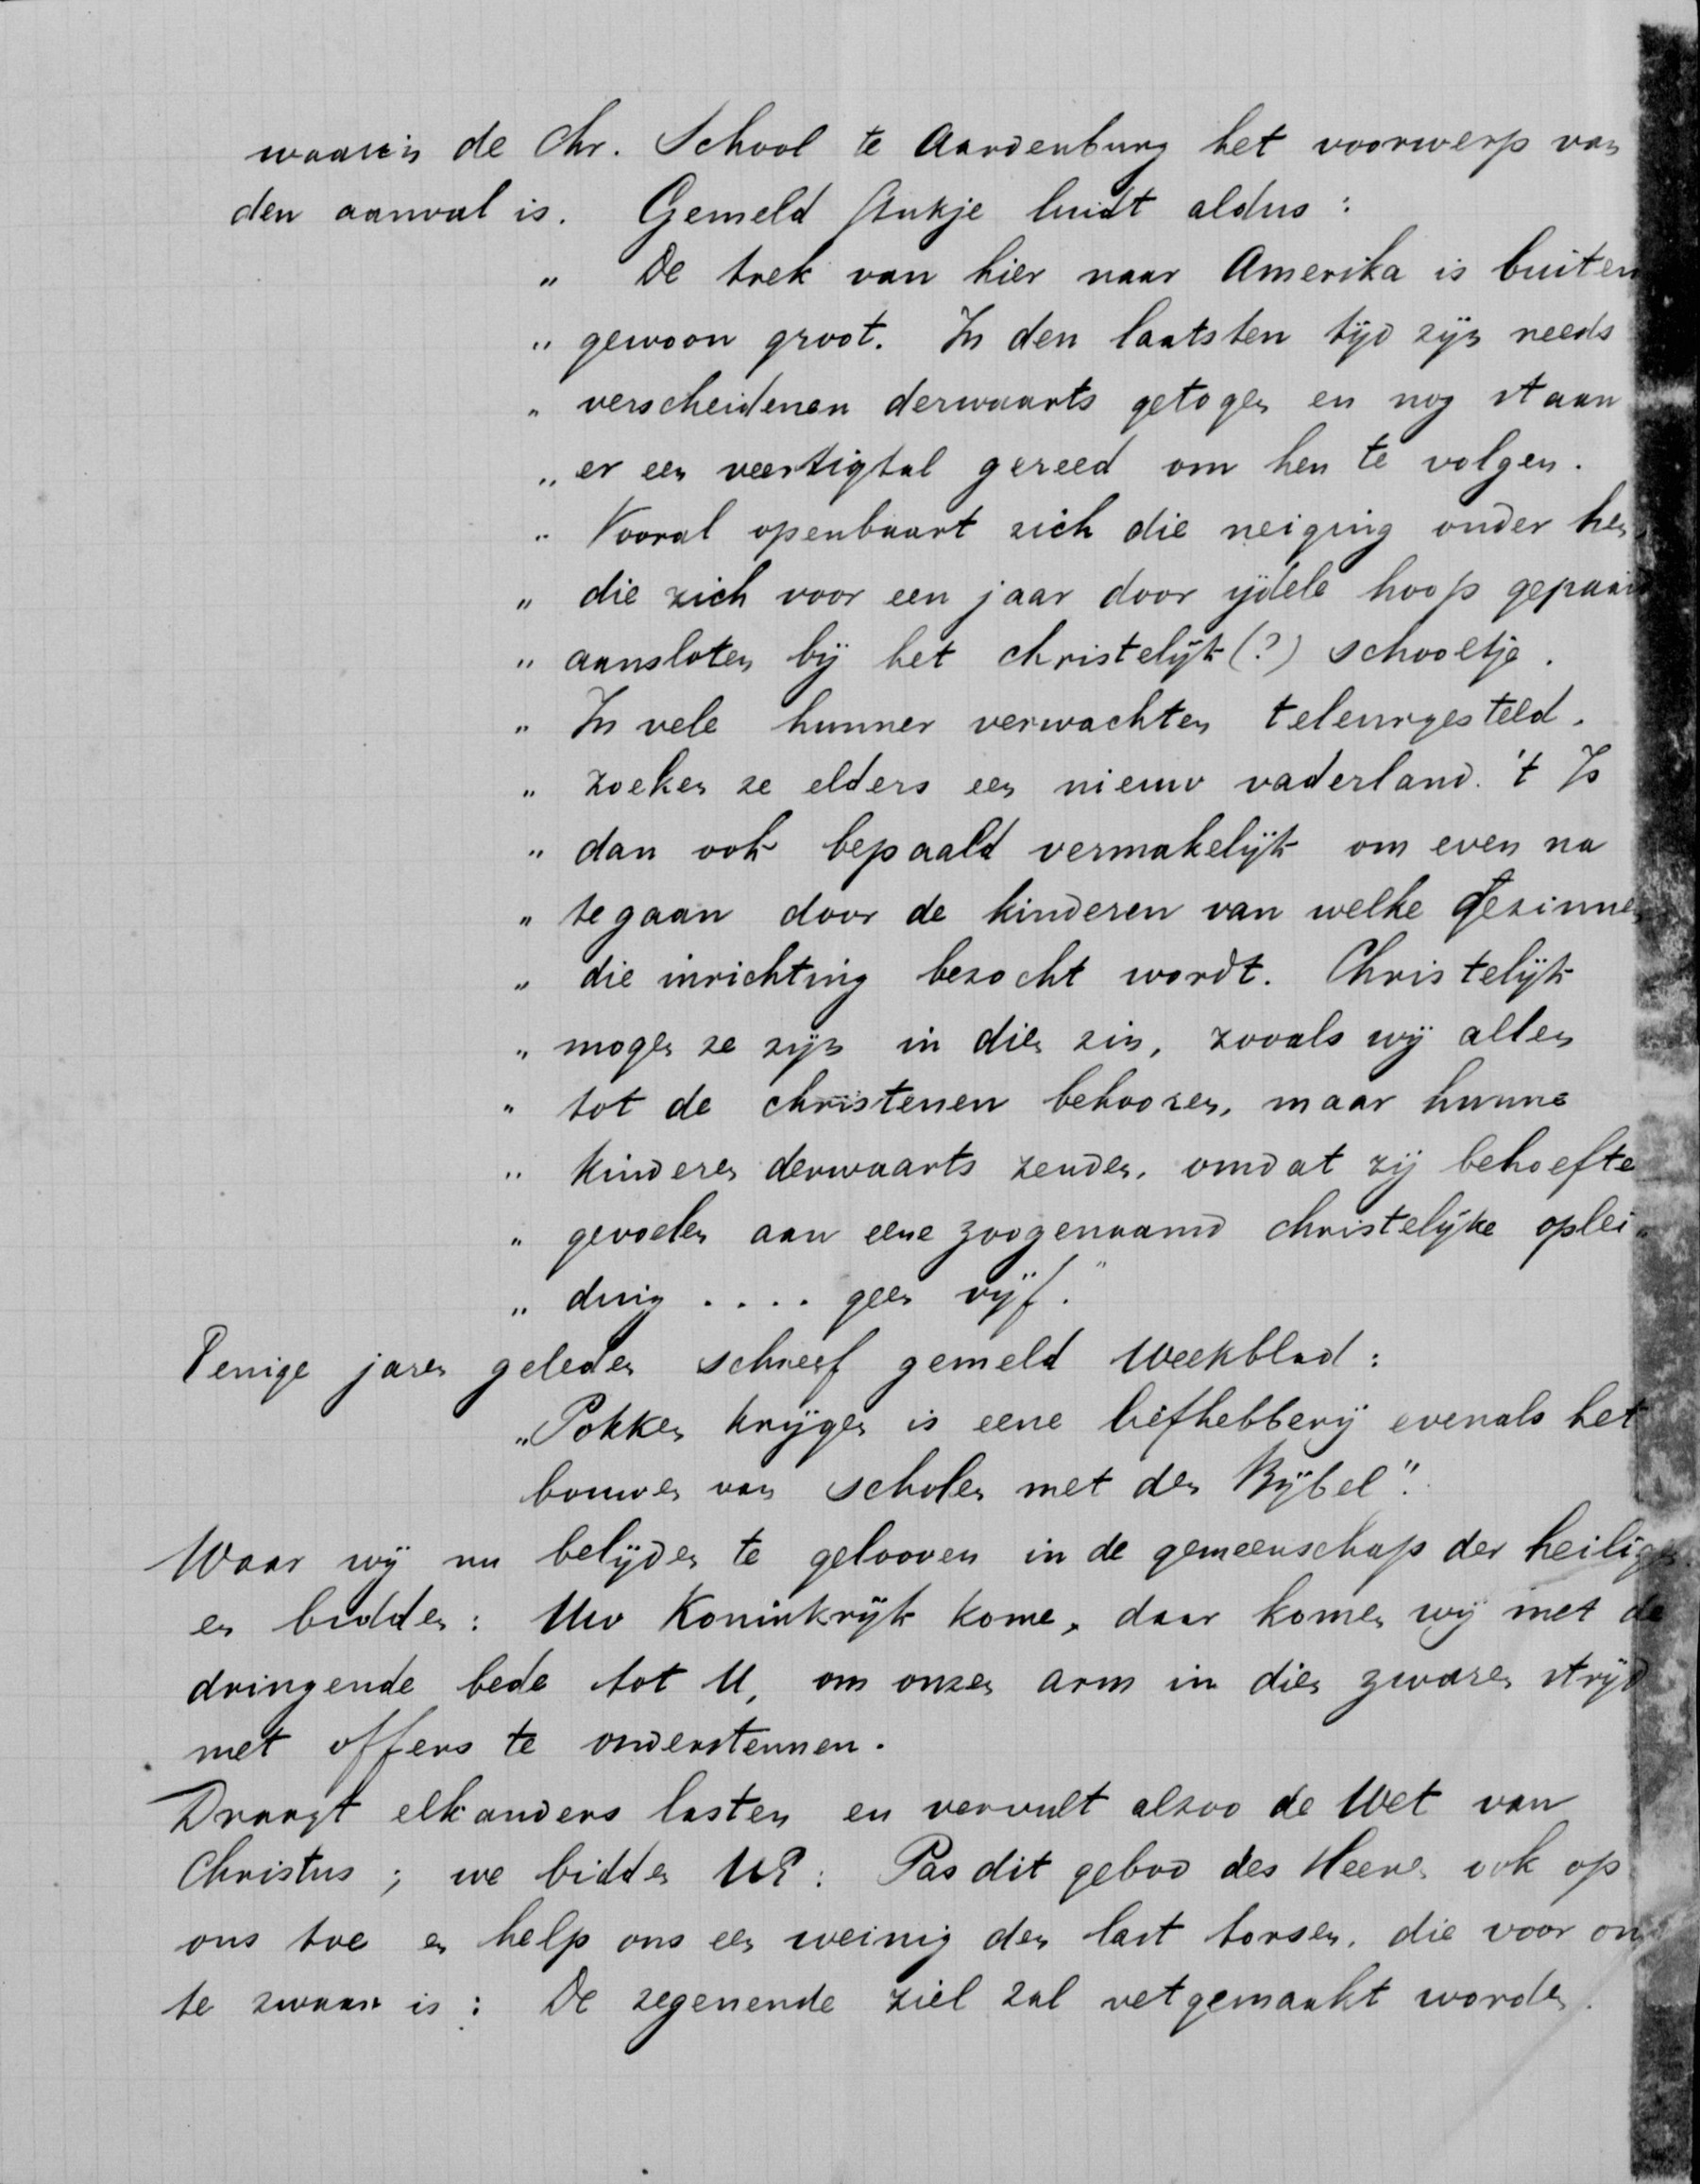 waarin de Chr. School te Aardenburg het voorwerp van
den aanval is. Gemeld stukje luidt aldus:
„ De trek van hier naar Amerika is buiten
„ gewoon groot. In den laatsten tijd zijn reeds
„ verscheidenen derwaarts getogen en nog staan
„ er een veertigtal gereed om hen te volgen.
„ Vooral openbaart zich die neiging onder hen
„ die zich voor een jaar door ijdele hoop gepaaid
„ aansloten bij het christelijk (?) schooltje.
„ In vele hunner verwachten teleurgesteld.
„ zoeken ze elders een nieuw vaderland. 't Is
„ dan ook bepaald vermakelijk om even na
„ te gaan door de kinderen van welke Gezinnen
„ die inrichting bezocht wordt. Christelijk
„ mogen ze zijn in dien zin, zooals wij allen
„ tot de christenen behooren, maar hunne
„ kinderen derwaarts zenden, omdat zij behoefte
„ gevoelen aan eene zoogenaamd christelijke oplei„
„ ding .... geen vijf."
Eenige jaren geleden schreef gemeld Weekblad:
„Pokken krijgen is eene liefhebberij evenals het
bouwen van scholen met den Bijbel".
Waar wij nu belijden te gelooven in de gemeenschap der heiligen
en bidden: Uw Koninkrijk kome, daar komen wij met de
dringende bede tot U, om onzen arm in dien zwaren strijd
met offers te ondersteunen.
Draagt elkanders lasten en vervult alzoo de Wet van
Christus; we bidden UE: Pas dit gebod des Heeren ook op
ons toe en help ons een weinig den last torsen, die voor ons
te zwaar is: De zegenende ziel zal vetgemaakt worden.